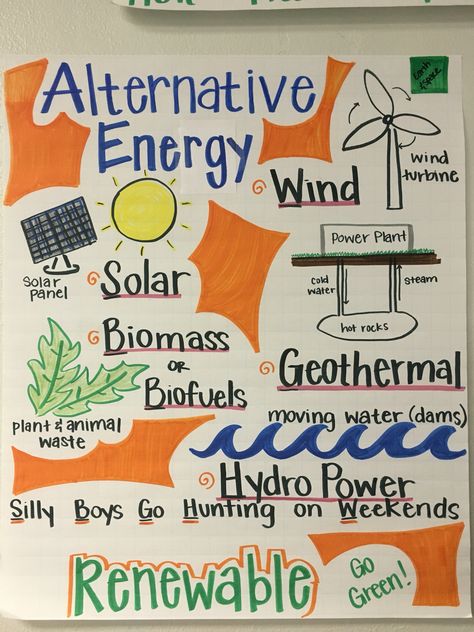 Alternative
Energy
Earth
& space
Wind
wind
turbine
Solar
Panel
Solar
Power Plant
cold
water
steam
hot rocks
Biomass
or
Biofuels
plant & animal
waste
Geothermal
moving water (dams)
Hydro Power
Silly Boys Go Hunting on Weekends
Renewable
Go
Green!